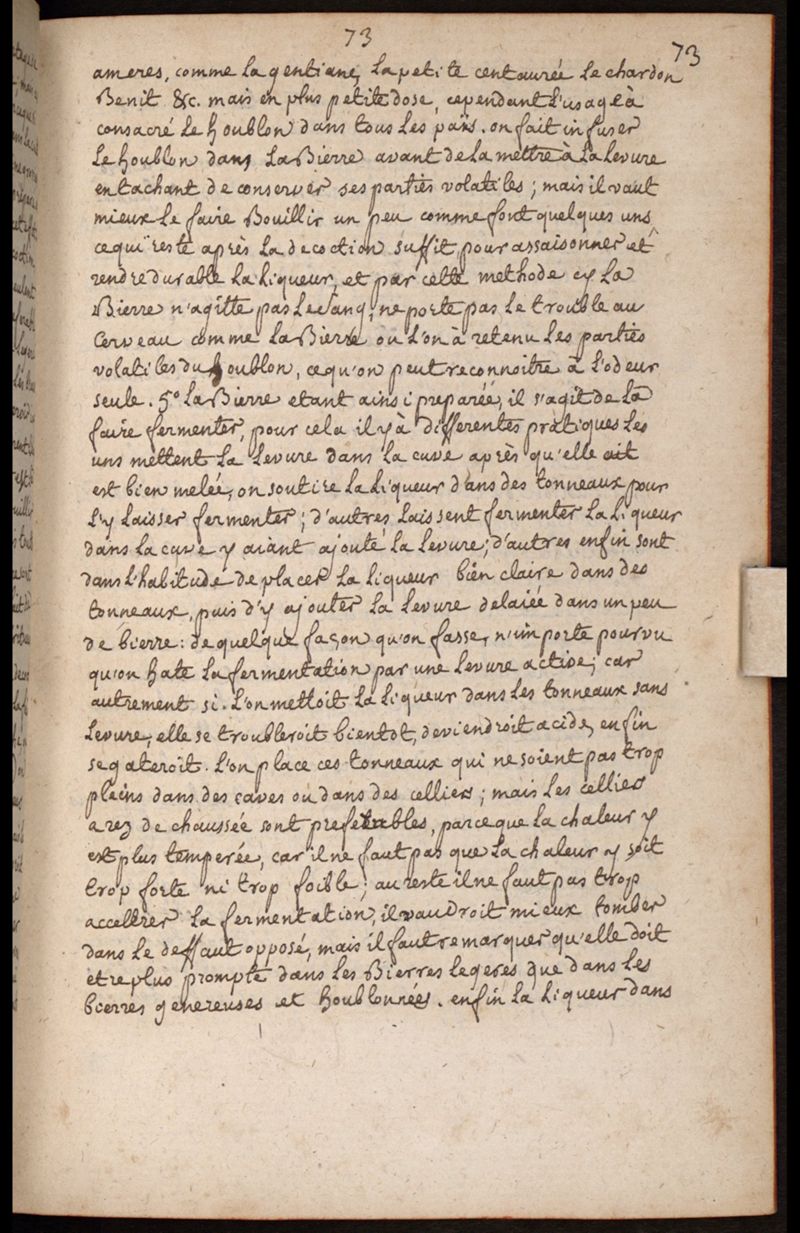 73
73
ameres, comme la gentiane, la petite centaurée le chardon
Benit &c. mais en plus petite dose, cependant l'usage à
consacré le houblon dans tous les païs. on fait infuser
le houblon dans la Bierre avant de la mettre à la levure
en tachant de conserver ses parties volatiles; mais il vaut
mieux le faire Bouillir un peu comme font quelques uns,
ce qui reste après la decoction suffit pour assaisonner et
rendre durable la liqueur, et par cette methode cy la
Bierre n'agitte pas le sang, ne porte pas le trouble au
Cerveau comme la Bierre ou l'on à retenu les parties
volatiles du houblon, ce qu'on peut reconnoitre à l'odeur
seule. 5º la Bierre etant ainsi preparée, il s'agit de la
faire fermenter, pour cela il y à differentes pratiques les
uns mettent la levure dans la cuve après qu'elle ait
est bien melée, on soutire la liqueur dans des tonneaux pour
l'y laisser fermenter; d'autres laissent fermenter la liqueur
dans la cuve y aiant ajouté la levure; d'autres enfin sont
dans l'habitude de placer la liqueur bien claire dans des
tonneaux, puis d'y ajouter la levure delaiée dans un peu
de bierre: de quelque façon qu'on fasse, n'importe pourvu
qu'on hate la fermentation par une levure active; car
autrement si l'on mettoit la liqueur dans les tonneaux sans
levure, elle se troubleroit bientot, deviendroit acide, enfin
se gateroit. l'on place ces tonneaux qui ne soient pas trop
pleins dans des caves ou dans des celliers; mais les celliers
a rez de chaussée sont preferables, parce que la chaleur y
est plus temperée, car il ne faut pas que la chaleur y soit
trop forte ni trop foible; au reste il ne faut pas trop
accelerer la fermentation, il vaudroit mieux tomber
dans le deffaut opposé, mais il faut remarquer qu'elle doit
etre plus prompte dans les Bierres legeres que dans les
bierres genereuses et houblonnées. enfin la liqueur dans